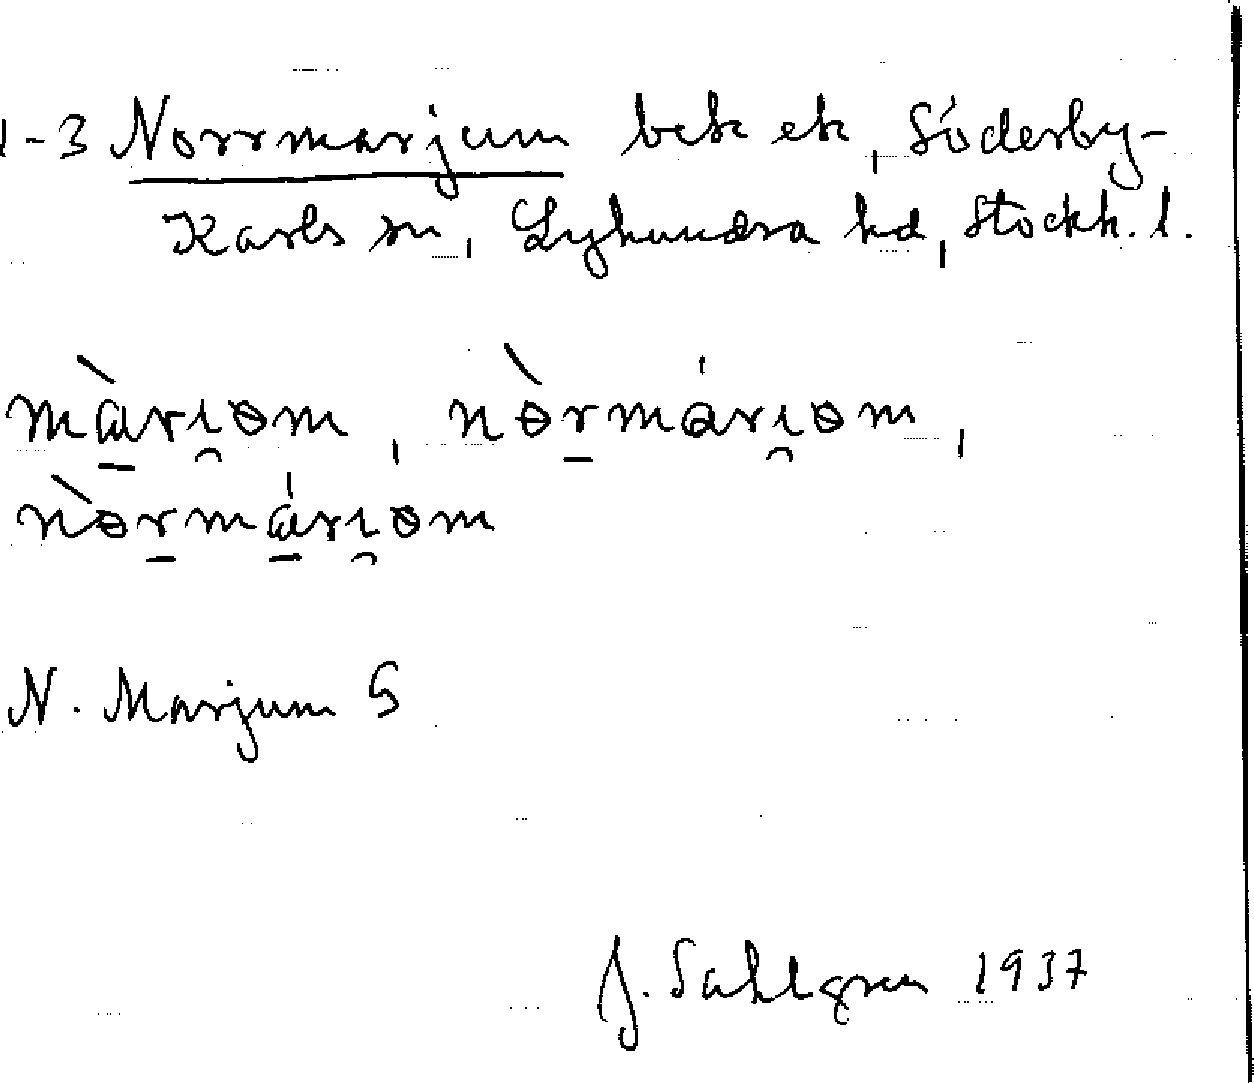 1-3 Norrmarjum bek ek, Söderby-
Karls sn, Lyhundra hd, Stockh. l.
màri̯ɵm, nɵ̀rmári̯ɵm,
nɵ̀rmári̯ɵm
N. Marjum S
J. Sahlgren 1937